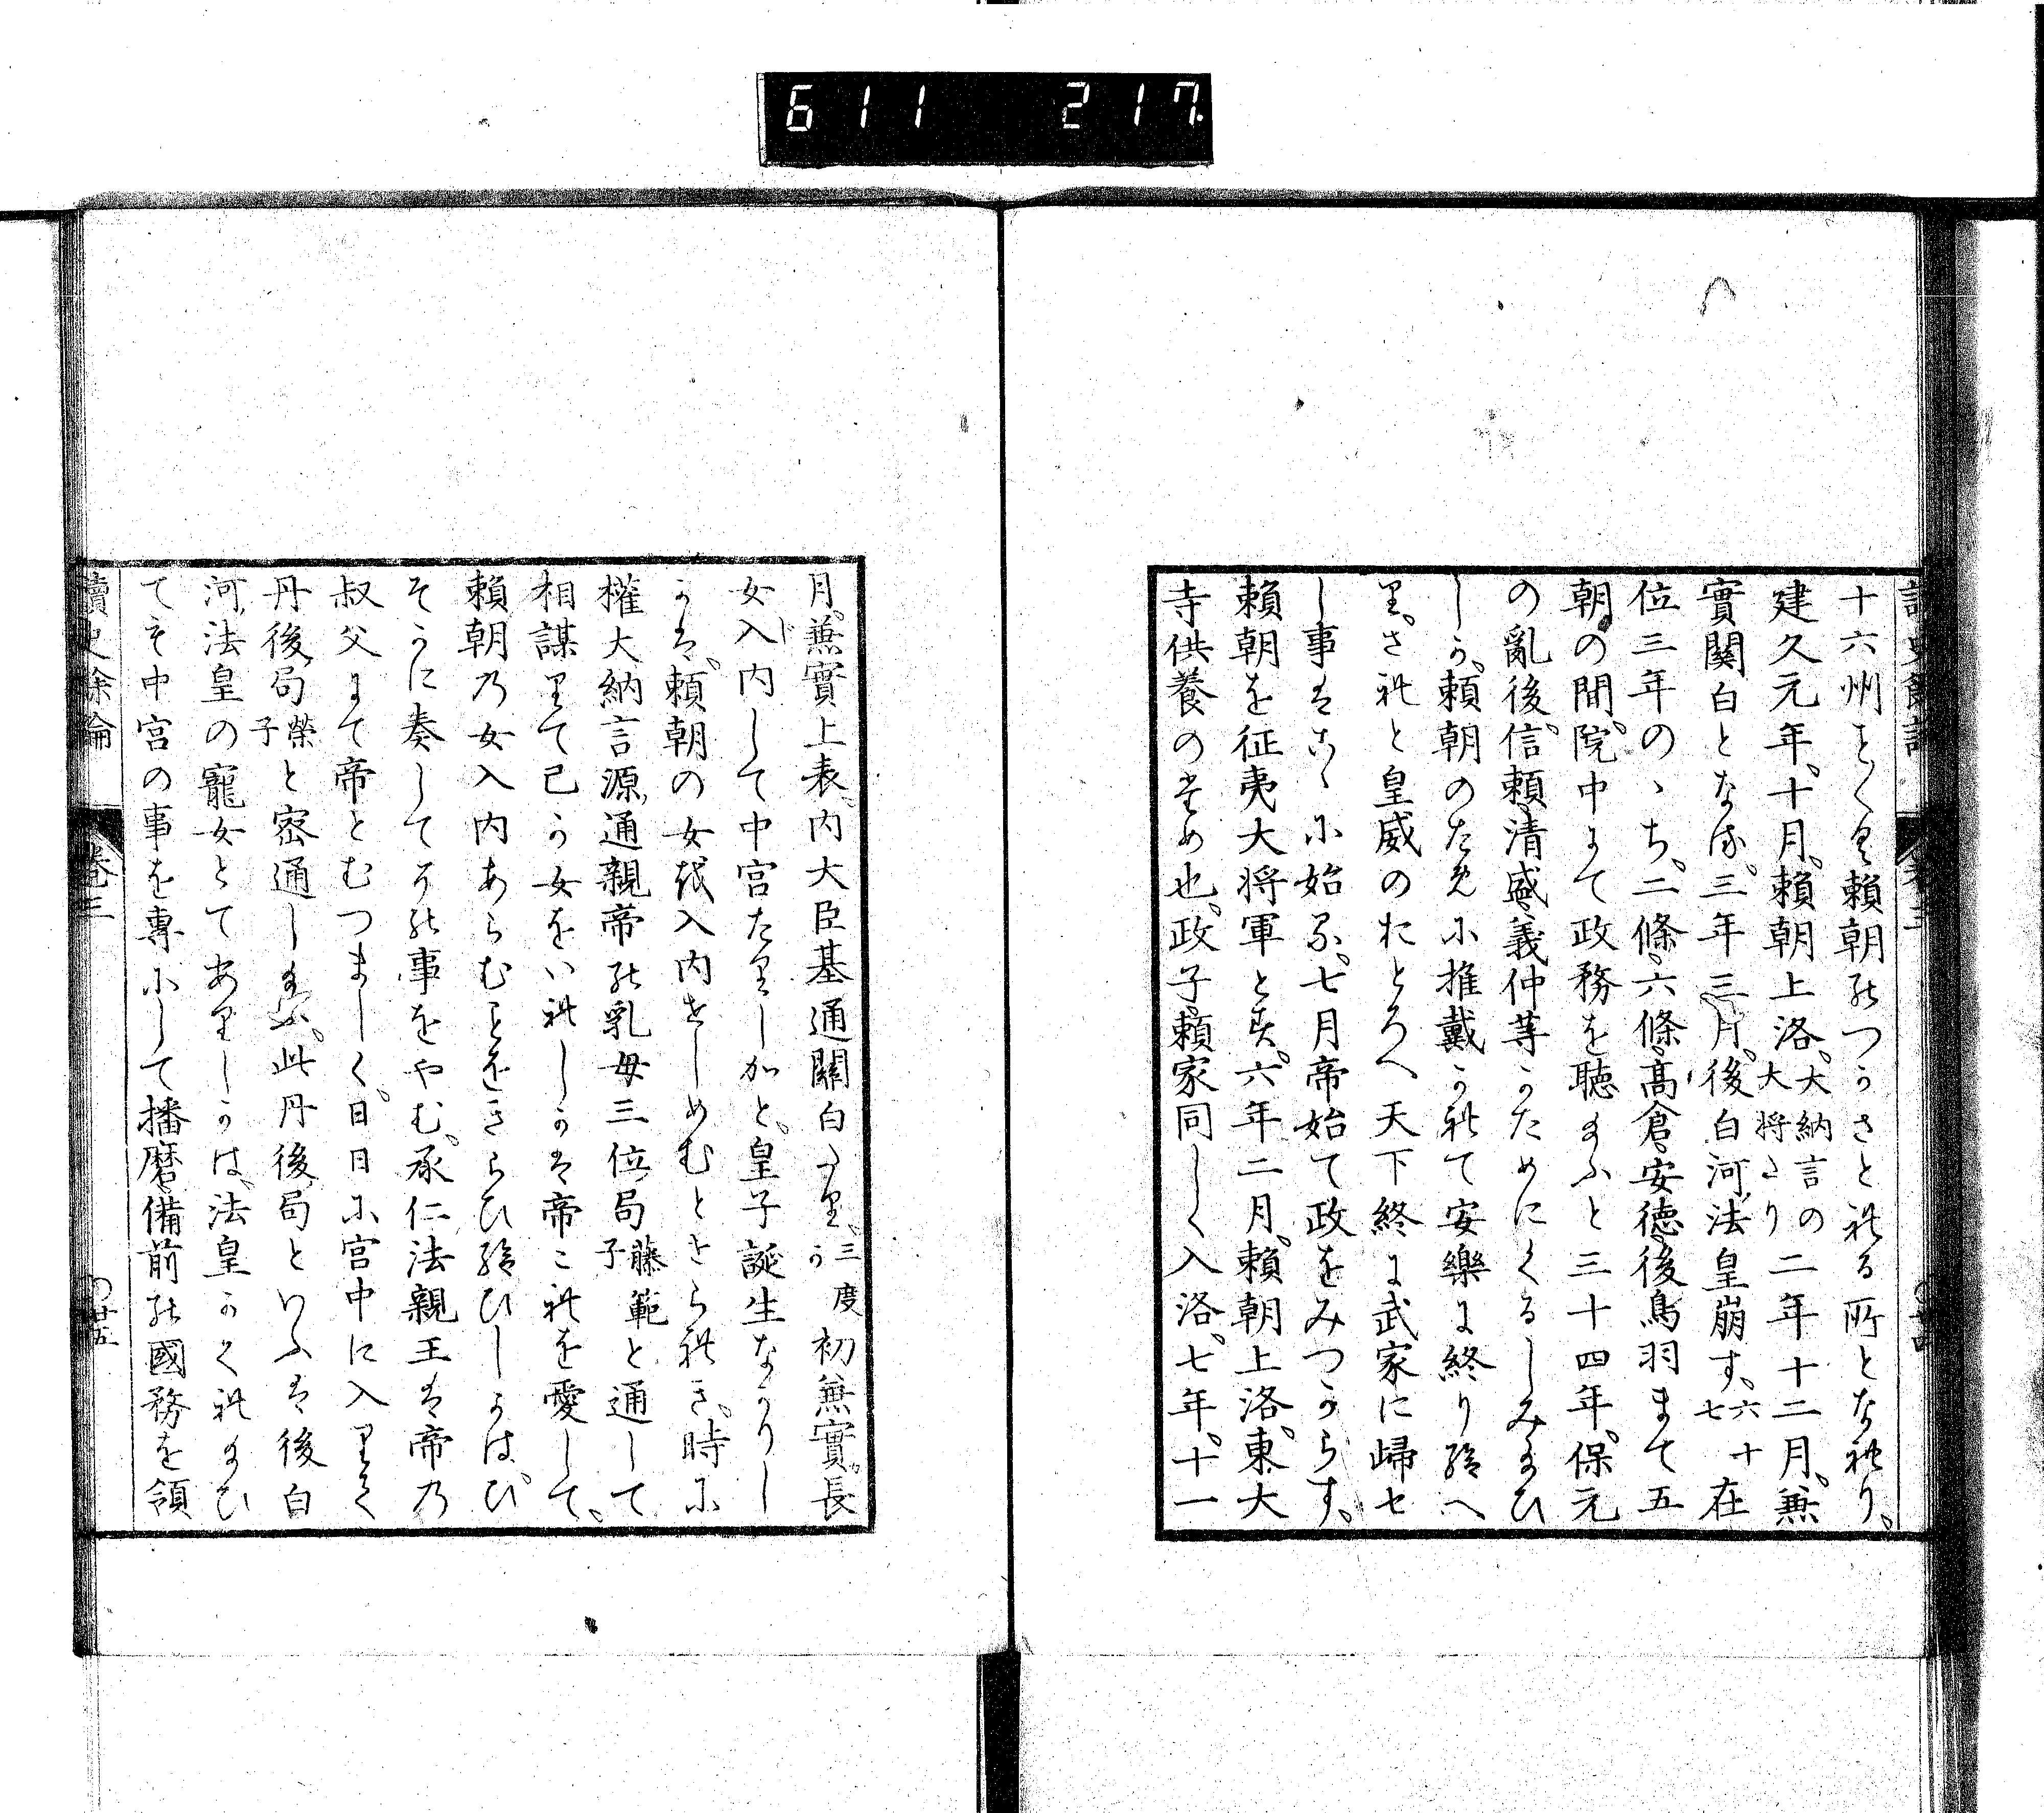 611 217
十六州をく里頼朝のつかさとれる所となれり。
建久元年。十月。頼朝上洛。大納言の大将たり二年十二月。兼
實關白となる。三年三月。後白河法皇崩す。六十七在
位三年のゝち。二條。六條。高倉。安徳。後鳥羽まて五
朝の間。院中にて政務を聴給ふと三十四年。保元
の亂後。信頼。清盛。義仲等かためにくるしみ給ひ
しか。頼朝のために推戴かれて安樂に終り給へ
り。されと皇威のおとろへ天下終に武家に歸せ
し事はこゝに始る。七月帝始て政をみつからす。
頼朝を征夷大将軍とす。六年二月。頼朝上洛。東大
寺供養のため也。政子頼家同しく入洛。七年。十一
讀史餘論 卷三 〇廿五
月。兼實上表。内大臣基通關白たり。三度か初兼實。長
女入内して中宮たりしかと。皇子誕生なかりし
かは。頼朝の女を入内せしめむとせられき。時に
權大納言源通親帝の乳母三位局藤範子と通して
相謀りて己か女をいれしかは帝これを愛して。
頼朝の女入内あらむことをきらひ給ひしかは。ひ
そかに奏してその事をやむ。承仁法親王は帝の
叔父にて帝とむつましく。日日に宮中に入りて
丹後局榮子と密通し給ふ。此丹後局といふは後白
河法皇の寵女とてありしかは。法皇かくれ給ひ
てそ中宮の事を專にして播磨備前の國務を領